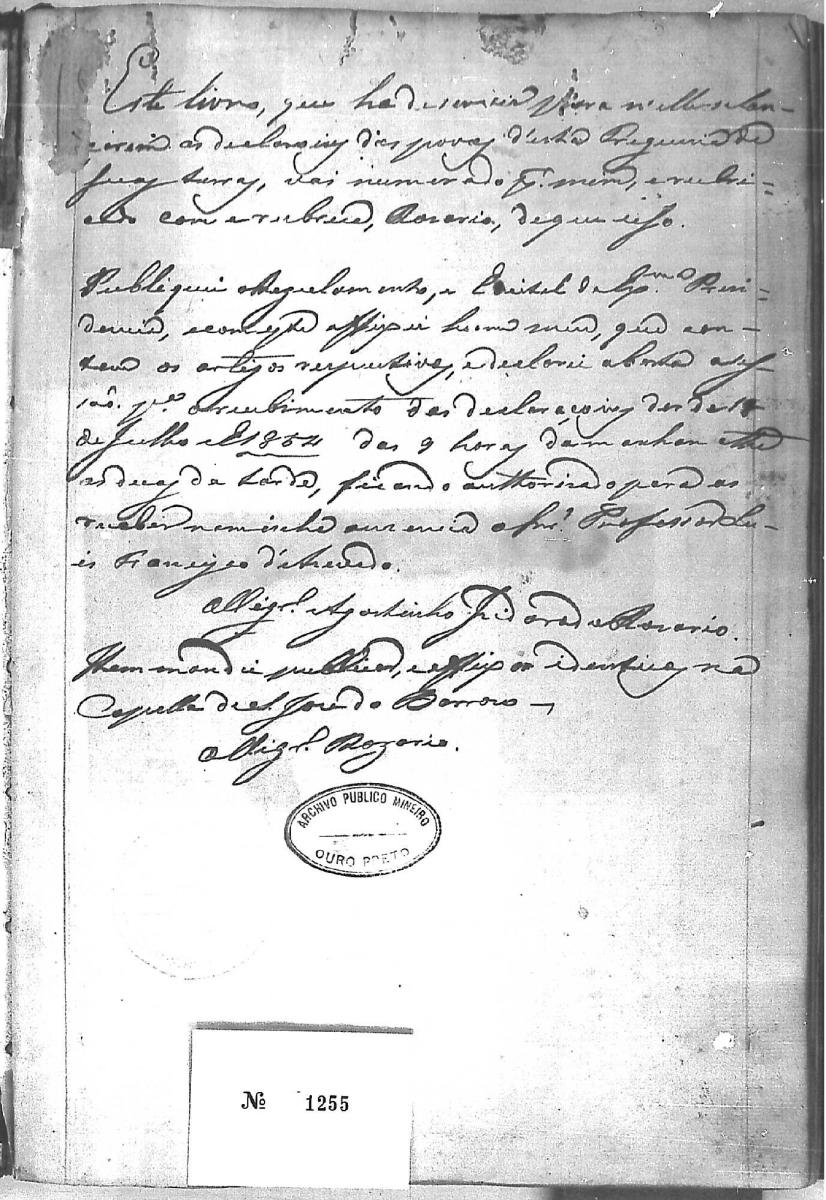 Este livro, que ha de servir para n'elle se lan-
çarem as declaraçoens dos povos d'esta Freguezia de
suas terras, vai numerado p.r mim, e rubri-
cado com a rubrica, Rosario, de que uso.
Publiquei o Regulamento, e Edital da Ex.ma Presi-
dencia, e com este affixei hum meu, que con-
tem os artigos respectivos, e declarei aberta a
p.a o recebimento das declaraçoens desde 18
de Julho de 1854 das 9 horas da manhan athe
as duas da tarde, ficando authorisado para as
receber na minha auzencia o Snr. Professor Lu-
is Francisco d'Azevedo.
O Vigr.o Agostinho Izidoro do Rosario.
Item mandei publicar, e affixar identicos na
Capella de S. José do Barroso
O Vigr.o Rozario.
ARCHIVO PUBLICO MINEIRO
OURO PRETO
Nº 1255